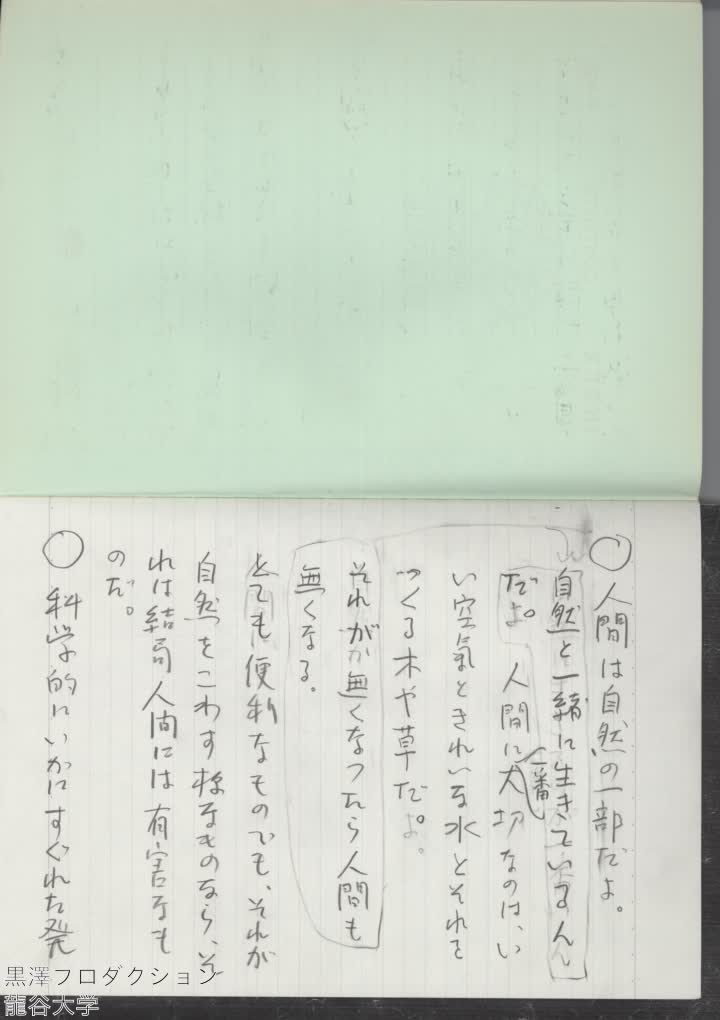 ○人間は自然の一部だよ。
自然と一緒に生きているんだ
だよ。人間に一番大切なのは、い
い空氣ときれいな水とそれを
つくる木や草だ。よ。
それがが無くなつたら人間も
無くなる。
とても便利なものでも、それが
自然をこわす様なものなら、そ
れは結局人间には有害なも
のだ。
○科学的にいかにすぐれた発
黒澤プロダクション
龍谷大学